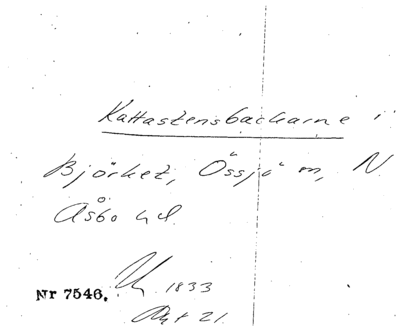 Kattastensbackarne i
Björket, Össjö m, N
Åsbo hd.
1833
Nr 7546.
Akt 21.